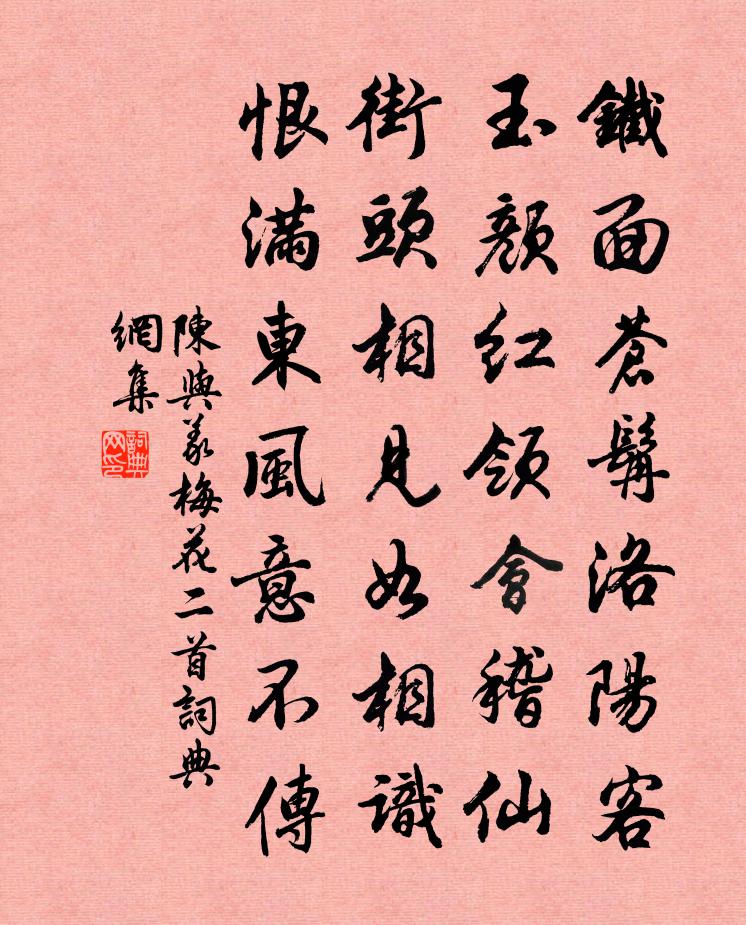 鐵面蒼髯洛陽客
玉顏紅領會稽仙
街頭相見如相識
恨滿東風意不傳
陳與義梅花二首詞典
網集
詞典
网印